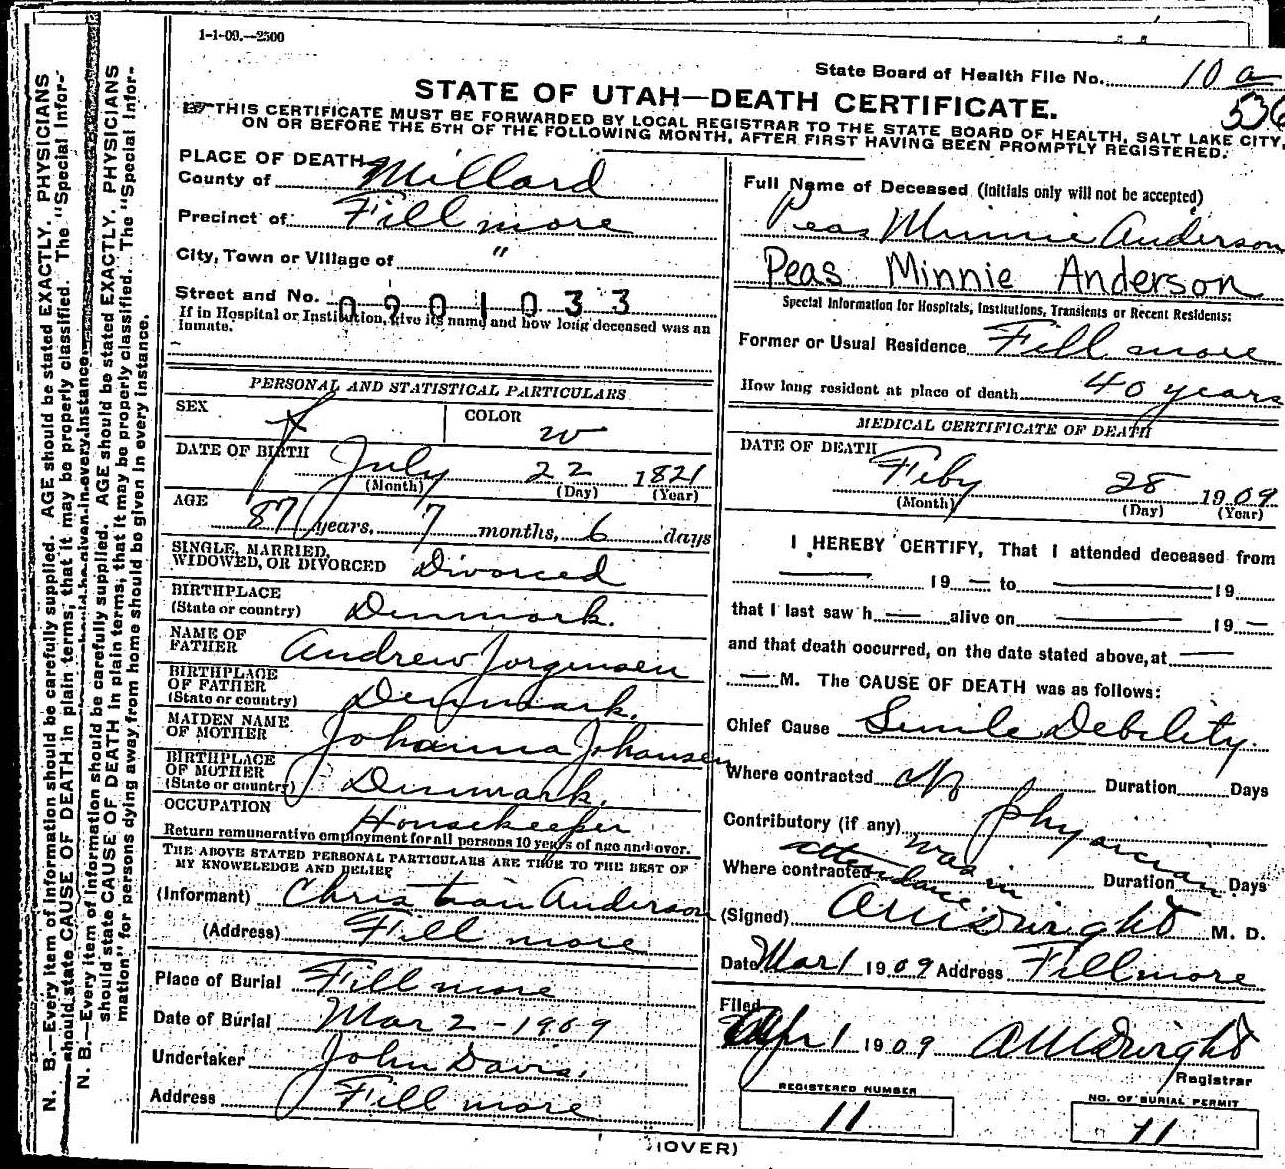 1-1-09.—2500
State Board of Health File No. 10 a
536
STATE OF UTAH—DEATH CERTIFICATE.
THIS CERTIFICATE MUST BE FORWARDED BY LOCAL REGISTRAR TO THE STATE BOARD OF HEALTH, SALT LAKE CITY,
ON OR BEFORE THE 5TH OF THE FOLLOWING MONTH, AFTER FIRST HAVING BEEN PROMPTLY REGISTERED.
PLACE OF DEATH
County of Millard
Precinct of Fillmore
City, Town or Village of "
Street and No. 0901033
If in Hospital or Institution, give its name and how long deceased was an
inmate.
PERSONAL AND STATISTICAL PARTICULARS
SEX f COLOR w
DATE OF BIRTH July 22 1821
(Month) (Day) (Year)
AGE 87 years, 7 months, 6 days
SINGLE, MARRIED,
WIDOWED, OR DIVORCED Divorced
BIRTHPLACE
(State or country) Denmark.
NAME OF
FATHER Andrew Jorgensen
BIRTHPLACE
OF FATHER
(State or country) Denmark.
MAIDEN NAME
OF MOTHER Johanna Johansen
BIRTHPLACE
OF MOTHER
(State or country) Denmark.
OCCUPATION Housekeeper
Return remunerative employment for all persons 10 years of age and over.
THE ABOVE STATED PERSONAL PARTICULARS ARE TRUE TO THE BEST OF
MY KNOWELEDGE AND BELIEF
(Informant) Christian Anderson
(Address) Fillmore
Place of Burial Fillmore
Date of Burial Mar 2 - 1909
Undertaker John Davis.
Address Fillmore
Full Name of Deceased (initials only will not be accepted)
Peas Minnie Anderson
Peas Minnie Anderson
Special Information for Hospitals, Institutions, Transients or Recent Residents:
Former or Usual Residence Fillmore
How long resident at place of death 40 years
MEDICAL CERTIFICATE OF DEATH
DATE OF DEATH Feby 28 1909
(Month) (Day) (Year)
I HEREBY CERTIFY, That I attended deceased from
— 19 — to — 19
that I last saw h — alive on — 19 —
and that death occurred, on the date stated above, at —
— M. The CAUSE OF DEATH was as follows:
Chief Cause Senile Debility.
Where contracted No Duration Days
Contributory (if any) physician
was in
Where contracted attendance Duration Days
(Signed) M. D.
Date Mar 1 1909 Address Fillmore
Filed
Apr 1 1909
Registrar
REGISTERED NUMBER
11
NO. OF BURIAL PERMIT
11
(OVER)
N. B.—Every item of information should be carefully supplied. AGE should be stated EXACTLY. PHYSICIANS
should state CAUSE OF DEATH in plain terms, that it may be properly classified. The "Special Infor-
N. B.—Every item of information should be carefully supplied. AGE should be stated EXACTLY. PHYSICIANS
should state CAUSE OF DEATH in plain terms, that it may be properly classified. The "Special Infor-
mation" for persons dying away from home should be given in every instance.